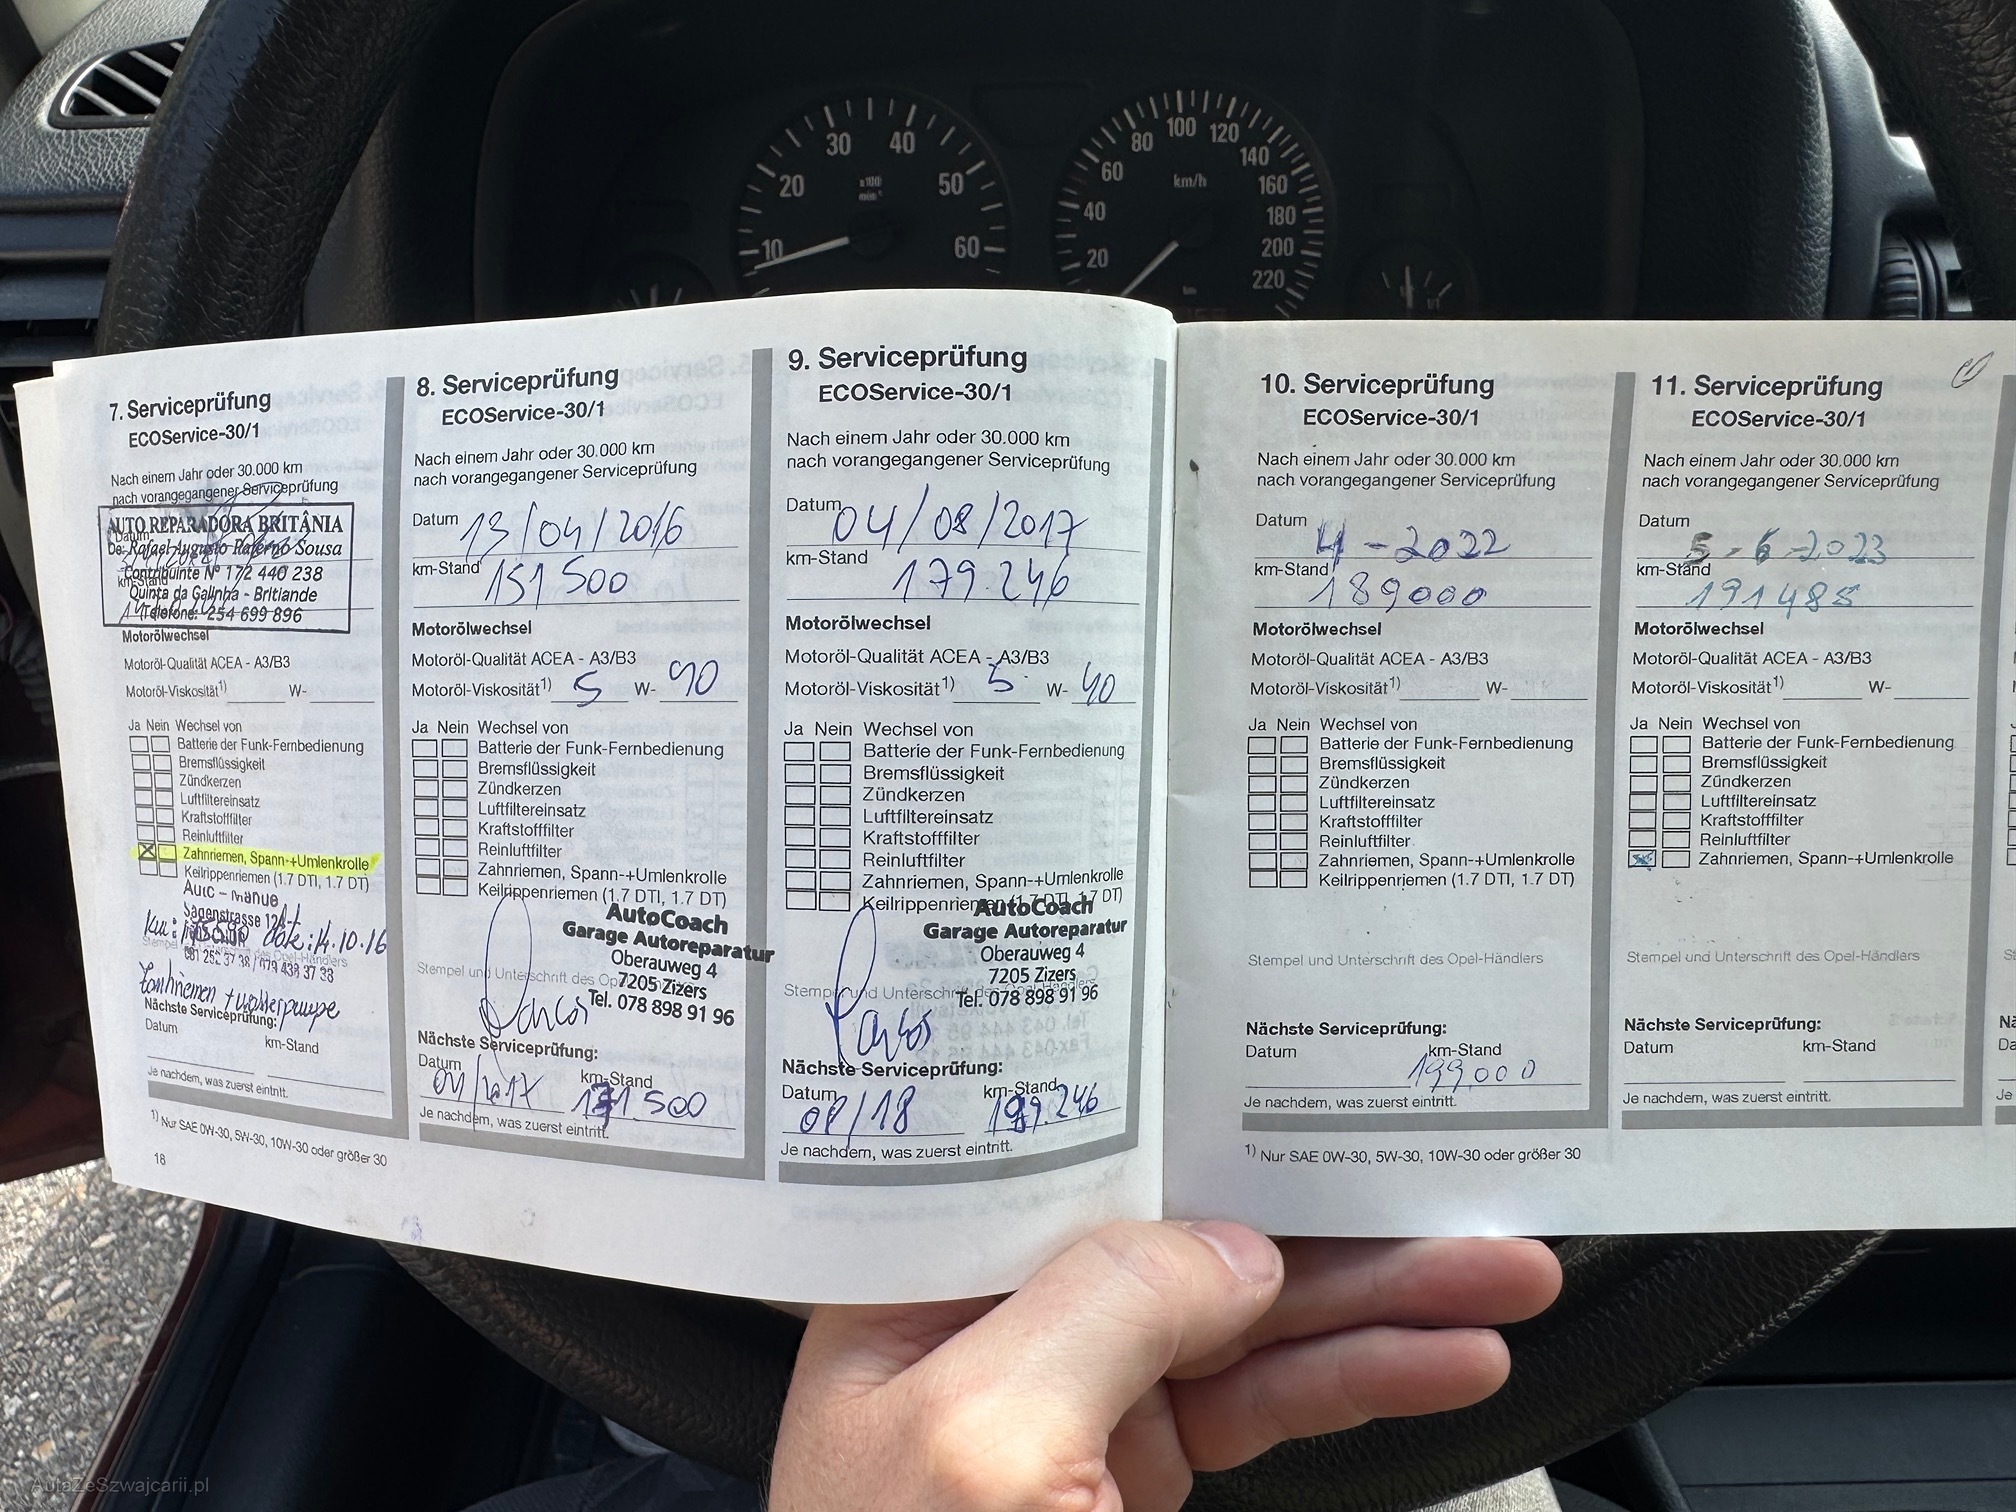 10
20
30
40
50
60
x100
min⁻¹
20
40
60
80
100
120
140
160
180
200
220
km/h
7. Serviceprüfung
ECOService-30/1
Nach einem Jahr oder 30.000 km
nach vorangegangener Serviceprüfung
AUTO REPARADORA BRITÂNIA
De: Rafael Augusto Paterno Sousa
Contribuinte Nº 172 440 238
Quinta da Galinha - Britiande
Telefone: 254 699 896
Datum
km-Stand
Motorölwechsel
Motoröl-Qualität ACEA - A3/B3
Motoröl-Viskosität¹⁾ W-
Ja Nein Wechsel von
Batterie der Funk-Fernbedienung
Bremsflüssigkeit
Zündkerzen
Luftfiltereinsatz
Kraftstofffilter
Reinluftfilter
Zahnriemen, Spann-+Umlenkrolle
Keilrippenriemen (1.7 DTI, 1.7 DT)
Sägenstrasse
Km: Date: 14.10.16
081 252 37 38 / 079 438 37 38
Zanhriemen + wasserpumpe
Nächste Serviceprüfung:
Datum km-Stand
Je nachdem, was zuerst eintritt.
¹⁾ Nur SAE 0W-30, 5W-30, 10W-30 oder größer 30
18
8. Serviceprüfung
ECOService-30/1
Nach einem Jahr oder 30.000 km
nach vorangegangener Serviceprüfung
Datum 13/04/2016
km-Stand 151 500
Motorölwechsel
Motoröl-Qualität ACEA - A3/B3
Motoröl-Viskosität¹⁾ 5 W- 40
Ja Nein Wechsel von
Batterie der Funk-Fernbedienung
Bremsflüssigkeit
Zündkerzen
Luftfiltereinsatz
Kraftstofffilter
Reinluftfilter
Zahnriemen, Spann-+Umlenkrolle
Keilrippenriemen (1.7 DTI, 1.7 DT)
AutoCoach
Garage Autoreparatur
Oberauweg 4
7205 Zizers
Tel. 078 898 91 96
Stempel und Unterschrift des
Nächste Serviceprüfung:
Datum km-Stand
04/2017 171.500
Je nachdem, was zuerst eintritt.
9. Serviceprüfung
ECOService-30/1
Nach einem Jahr oder 30.000 km
nach vorangegangener Serviceprüfung
Datum 04/08/2017
km-Stand 179.246
Motorölwechsel
Motoröl-Qualität ACEA - A3/B3
Motoröl-Viskosität¹⁾ 5 W- 40
Ja Nein Wechsel von
Batterie der Funk-Fernbedienung
Bremsflüssigkeit
Zündkerzen
Luftfiltereinsatz
Kraftstofffilter
Reinluftfilter
Zahnriemen, Spann-+Umlenkrolle
Keilrippenriemen (1.7 DTI, 1.7 DT)
AutoCoach
Garage Autoreparatur
Oberauweg 4
7205 Zizers
Tel. 078 898 91 96
Stempel und Unterschrift des Opel-Händlers
Nächste Serviceprüfung:
Datum km-Stand
08/18 199.246
Je nachdem, was zuerst eintritt.
10. Serviceprüfung
ECOService-30/1
Nach einem Jahr oder 30.000 km
nach vorangegangener Serviceprüfung
Datum 4 - 2022
km-Stand 189000
Motorölwechsel
Motoröl-Qualität ACEA - A3/B3
Motoröl-Viskosität¹⁾ W-
Ja Nein Wechsel von
Batterie der Funk-Fernbedienung
Bremsflüssigkeit
Zündkerzen
Luftfiltereinsatz
Kraftstofffilter
Reinluftfilter
Zahnriemen, Spann-+Umlenkrolle
Keilrippenriemen (1.7 DTI, 1.7 DT)
Stempel und Unterschrift des Opel-Händlers
Nächste Serviceprüfung:
Datum km-Stand
199.000
Je nachdem, was zuerst eintritt.
¹⁾ Nur SAE 0W-30, 5W-30, 10W-30 oder größer 30
11. Serviceprüfung
ECOService-30/1
Nach einem Jahr oder 30.000 km
nach vorangegangener Serviceprüfung
Datum 5-6-2023
km-Stand 191485
Motorölwechsel
Motoröl-Qualität ACEA - A3/B3
Motoröl-Viskosität¹⁾ W-
Ja Nein Wechsel von
Batterie der Funk-Fernbedienung
Bremsflüssigkeit
Zündkerzen
Luftfiltereinsatz
Kraftstofffilter
Reinluftfilter
Zahnriemen, Spann-+Umlenkrolle
Stempel und Unterschrift des Opel-Händlers
Nächste Serviceprüfung:
Datum km-Stand
Je nachdem, was zuerst eintritt.
AutaZeSzwajcarii.pl